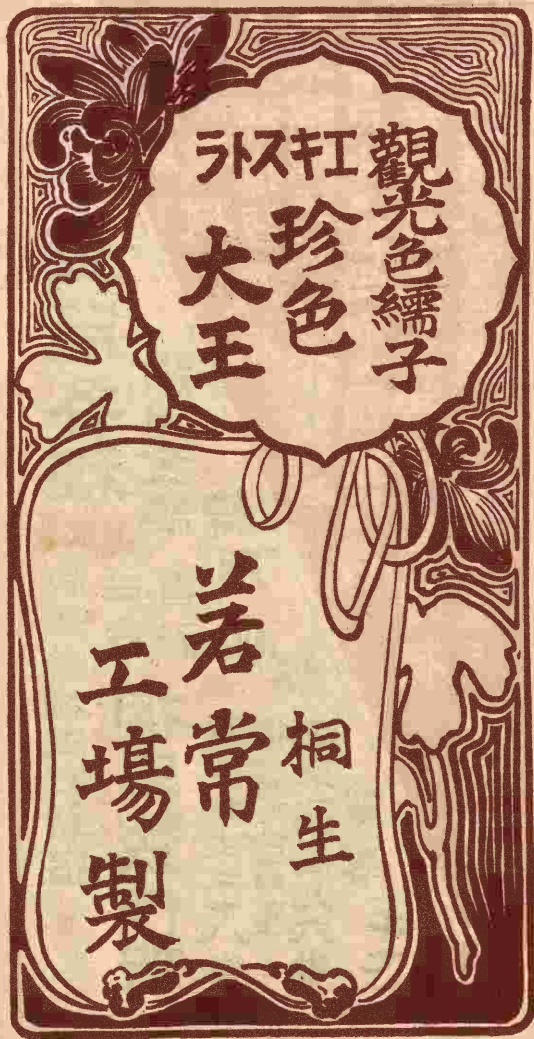 觀光色繻子
エキストラ
珍色
大王
桐生
若常
工場製